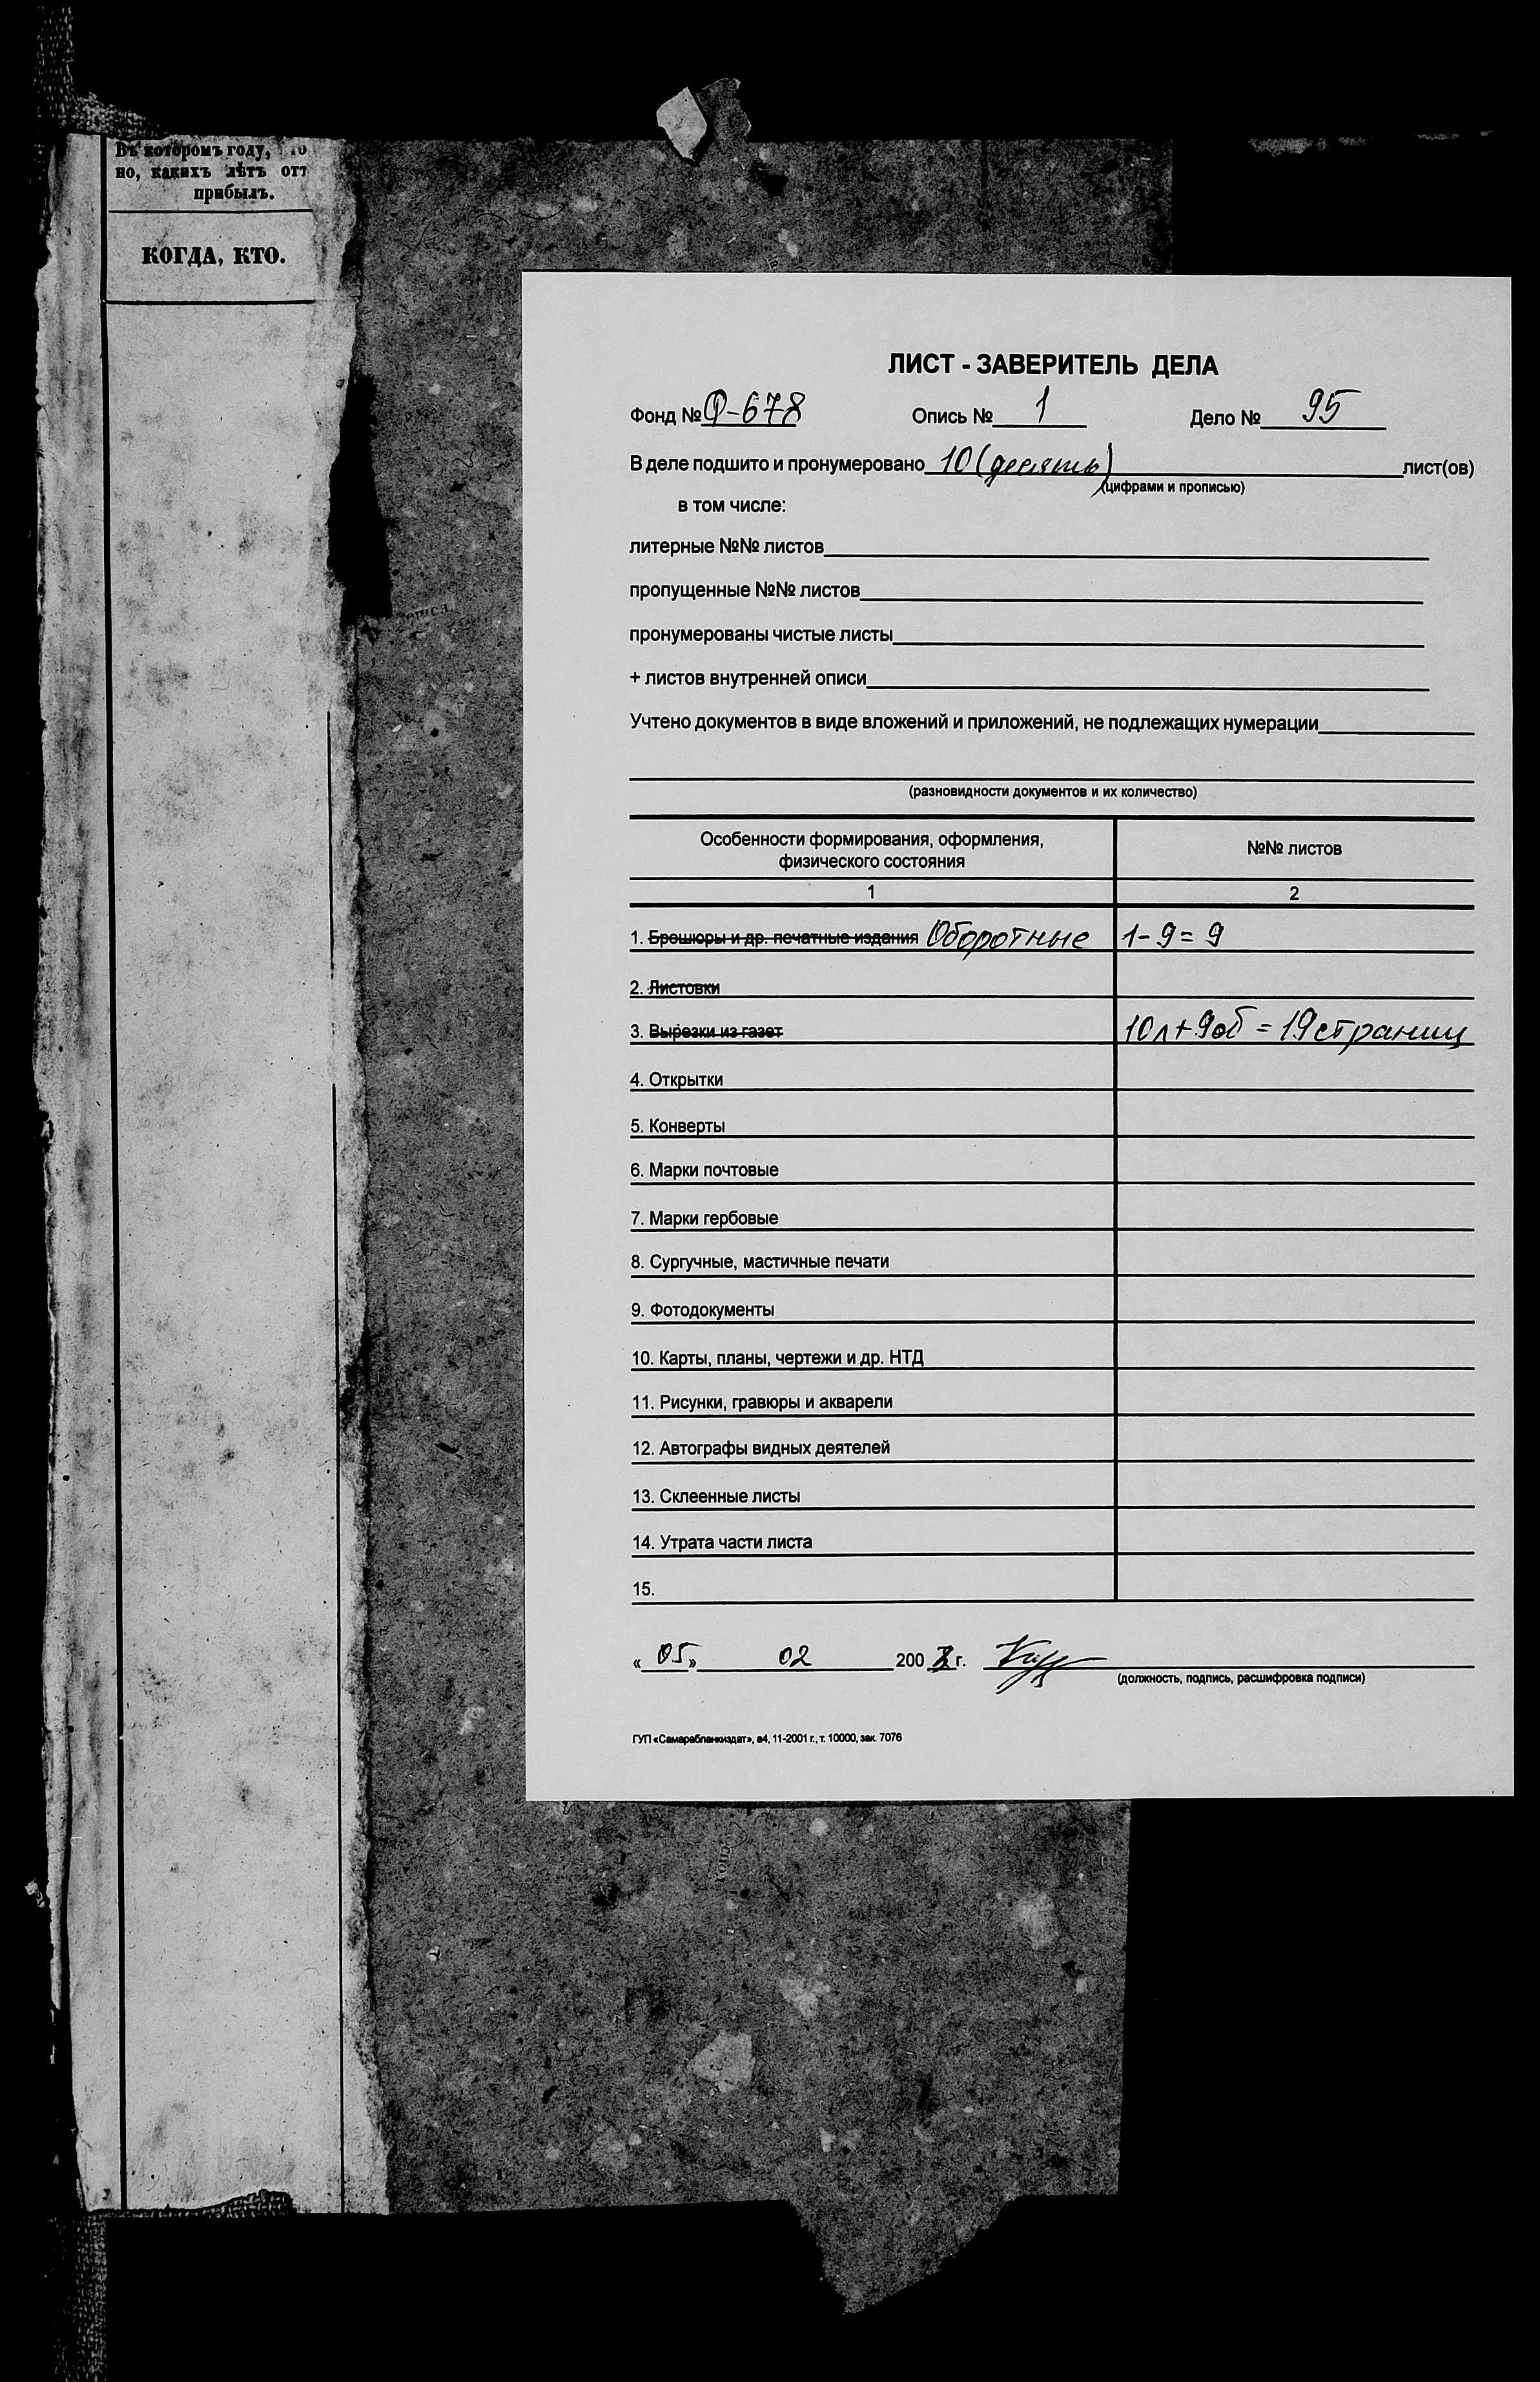 Въ которомъ году,
но, какихъ лѣтъ отт
прибылъ.
КОГДА, КТО.
ЛИСТ - ЗАВЕРИТЕЛЬ ДЕЛА
Фонд № Ф-678 Опись № 1 Дело № 95
В деле подшито и пронумеровано 10 (десять) лист(ов)
(цифрами и прописью)
в том числе:
литерные №№ листов
пропущенные №№ листов
пронумерованы чистые листы
+ листов внутренней описи
Учтено документов в виде вложений и приложений, не подлежащих нумерации
(разновидности документов и их количество)
Особенности формирования, оформления,
физического состояния
№№ листов
1 2
1. Брошюры и др. печатные издания Оборотные 1-9=9
2. Листовки
3. Вырезки из газет 10л+9об=19страниц
4. Открытки
5. Конверты
6. Марки почтовые
7. Марки гербовые
8. Сургучные, мастичные печати
9. Фотодокументы
10. Карты, планы, чертежи и др. НТД
11. Рисунки, гравюры и акварели
12. Автографы видных деятелей
13. Склеенные листы
14. Утрата части листа
15.
«05» 02 200 г.
(должность, подпись, расшифровка подписи)
ГУП «Самарабланкиздат», а4, 11-2001 г., т. 10000, зак. 7076